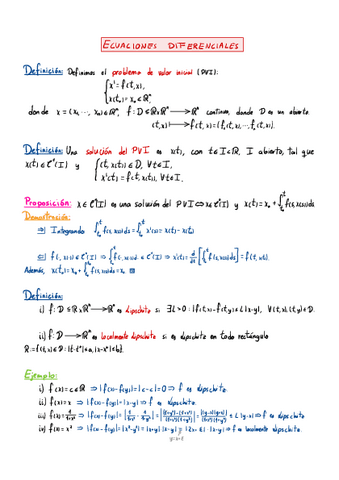 ECUACIONES DIFERENCIALES
Definición: Definimos el problema de valor inicial (PVI):
{ x' = f(t,x),
x(t₀) = x₀ ∈ ℝⁿ,
donde x = (x₁, ..., xₙ) ∈ ℝⁿ, f: D ⊆ ℝ×ℝⁿ ⟶ ℝⁿ continua, donde D es un abierto
(t,x) ⟶ f(t,x) = (f₁(t,x), ..., fₙ(t,x)).
Definición: Una solución del PVI es x(t), con t ∈ I ⊂ ℝ, I abierto, tal que
x(t) ∈ C¹(I) y { (t, x(t)) ∈ D, ∀t ∈ I,
x'(t) = f(t, x(t)), ∀t ∈ I.
Proposición: x ∈ C¹(I) es una solución del PVI ⟺ x ∈ C(I) y x(t) = x₀ + ∫ f(s, x(s)) ds
Demostración:
⇒ Integrando ∫ f(s, x(s)) ds = ∫ x'(s) ds = x(t) - x(t₀)
Además, x(t₀) = x₀ + ∫ f(s, x(s)) ds = x₀
Definición:
i) f: D ⊆ ℝ×ℝⁿ ⟶ ℝⁿ es lipschitz si ∃ L > 0 : |f(t,x) - f(t,y)| ≤ L|x-y|, ∀(t,x), (t,y) ∈ D.
ii) f: D ⟶ ℝⁿ es localmente lipschitz si es lipschitz en todo rectángulo
Ejemplo:
i) f(x) = c ∈ ℝ ⇒ |f(x) - f(y)| = |c - c| = 0 ⇒ f es lipschitz.
ii) f(x) = x ⇒ |f(x) - f(y)| = |x - y| ⇒ f es lipschitz.
iv) f(x) = x² ⇒ |f(x) - f(y)| = |x² - y²| = |x+y| |x-y| ⇒ f es localmente lipschitz.